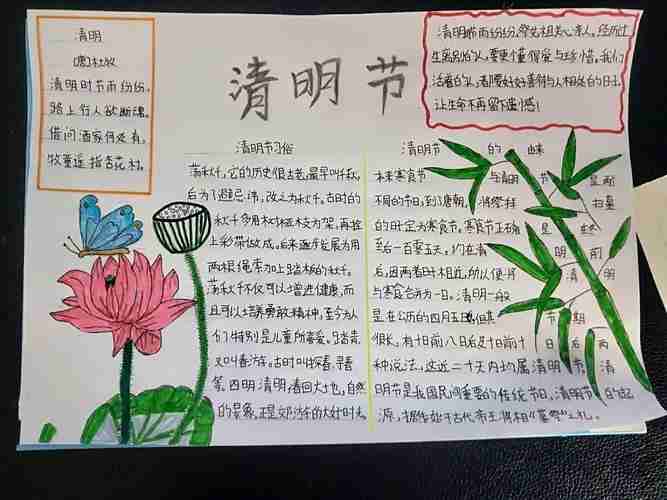 清明节
清明
(唐)杜牧
清明时节雨纷纷,
路上行人欲断魂。
借问酒家何处有,
牧童遥指杏花村。
清明节雨纷纷,祭先祖关心亲人。经历过
生离别的人,要更懂得爱与珍惜。我们
活着的人,都要好好善待与人相处的日子,
让生命不再留下遗憾!
清明节习俗
荡秋千,它的历史很古老,最早叫千秋,
后为了避忌讳,改之为秋千。古时的
秋千多用树桠枝为架,再拴
上彩带做成。后来逐步发展为用
两根绳索加上踏板的秋千。
荡秋千不仅可以增进健康,而
且可以培养勇敢精神,至今为人
们特别是儿童所喜爱。踏青
又叫春游。古时叫探春、寻春
等。四月清明,春回大地,自然
的景象,正是郊游的大好时光
清明节 的 由来
本来寒食节 与清明 节 是两
不同的节日,到了唐朝, 将祭拜 扫墓
的日子定为寒食节。寒食节正确 是 冬至
后一百零五天。约在清 明 前
后,因两者日子相近,所以便将 清 明
与寒食合并为一日。清明一般
是在公历的四月五日,但其 节 期
很长,有十日前八日后及十日前十 日 后 两
种说法,这近二十天内均属清明 节。 清
明节是我国民间重要的传统节日,清明节 的起
源,据传始于古代帝王将相“墓祭”之礼。